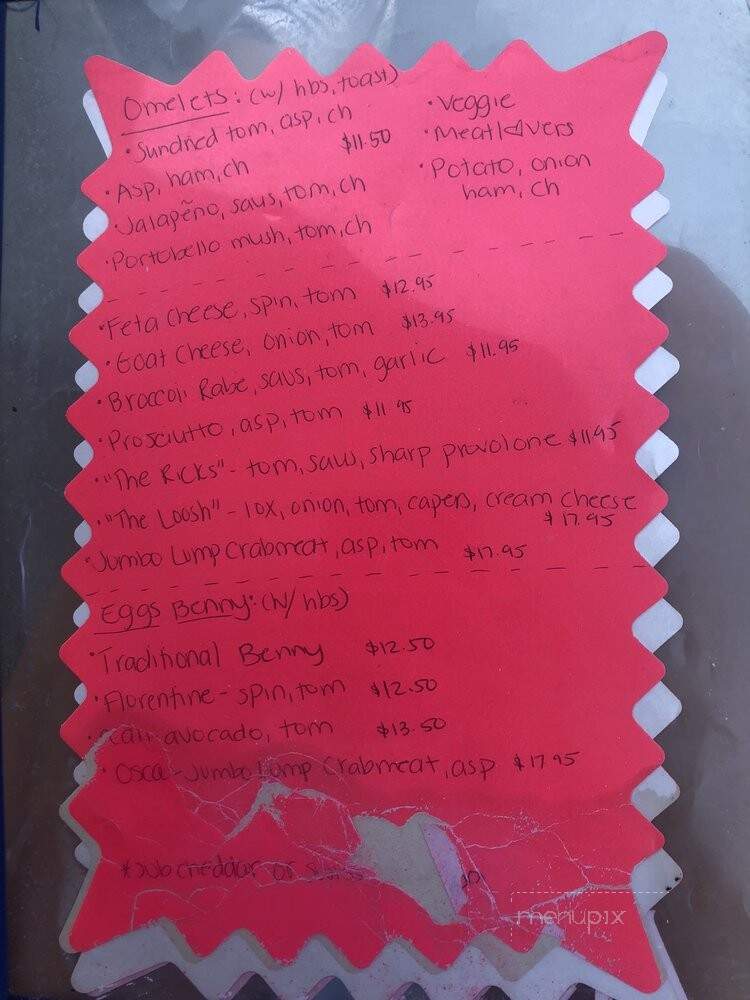 Omelets: (w/ hbs, toast)
• Sundried tom, asp, ch
$11.50
• Asp, ham, ch
• Jalapeño, saus, tom, ch
• Portobello mush, tom, ch
• Veggie
• Meatl♡vers
• Potato, onion
ham, ch
• Feta Cheese, spin, tom $12.95
• Goat Cheese, onion, tom $13.95
• Broccoli Rabe, saus, tom, garlic $11.95
• Prosciutto, asp, tom $11.95
• "The Ricks" - tom, saus, sharp provolone $11.95
• "The Loosh" - lox, onion, tom, capers, cream cheese
$17.95
• Jumbo Lump Crabmeat, asp, tom $17.95
Eggs Benny: (w/ hbs)
• Traditional Benny $12.50
• Florentine - spin, tom $12.50
avocado, tom $13.50
• Osca - Jumbo Lump Crabmeat, asp $17.95
*sub cheddar or
menupix